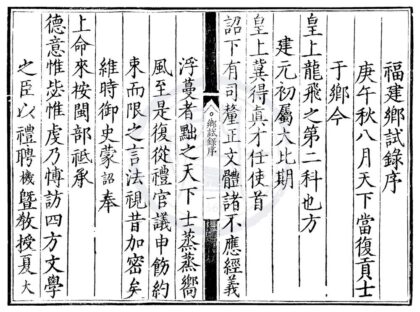 福建鄉試錄序
庚午秋八月天下當復貢士
于鄉今
皇上龍飛之第二科也方
建元初屬大比期
皇上冀得真才任使首
詔下有司釐正文體諸不應經義
鄉試錄序
一
浮蔓者黜之天下士蒸蒸嚮
風至是復從禮官議申飭約
束而限之言法視昔加密矣
維時御史蒙詔奉
上命來按閩部祗承
德意惟毖惟虔乃博訪四方文學
之臣以禮聘機暨敎授夏大